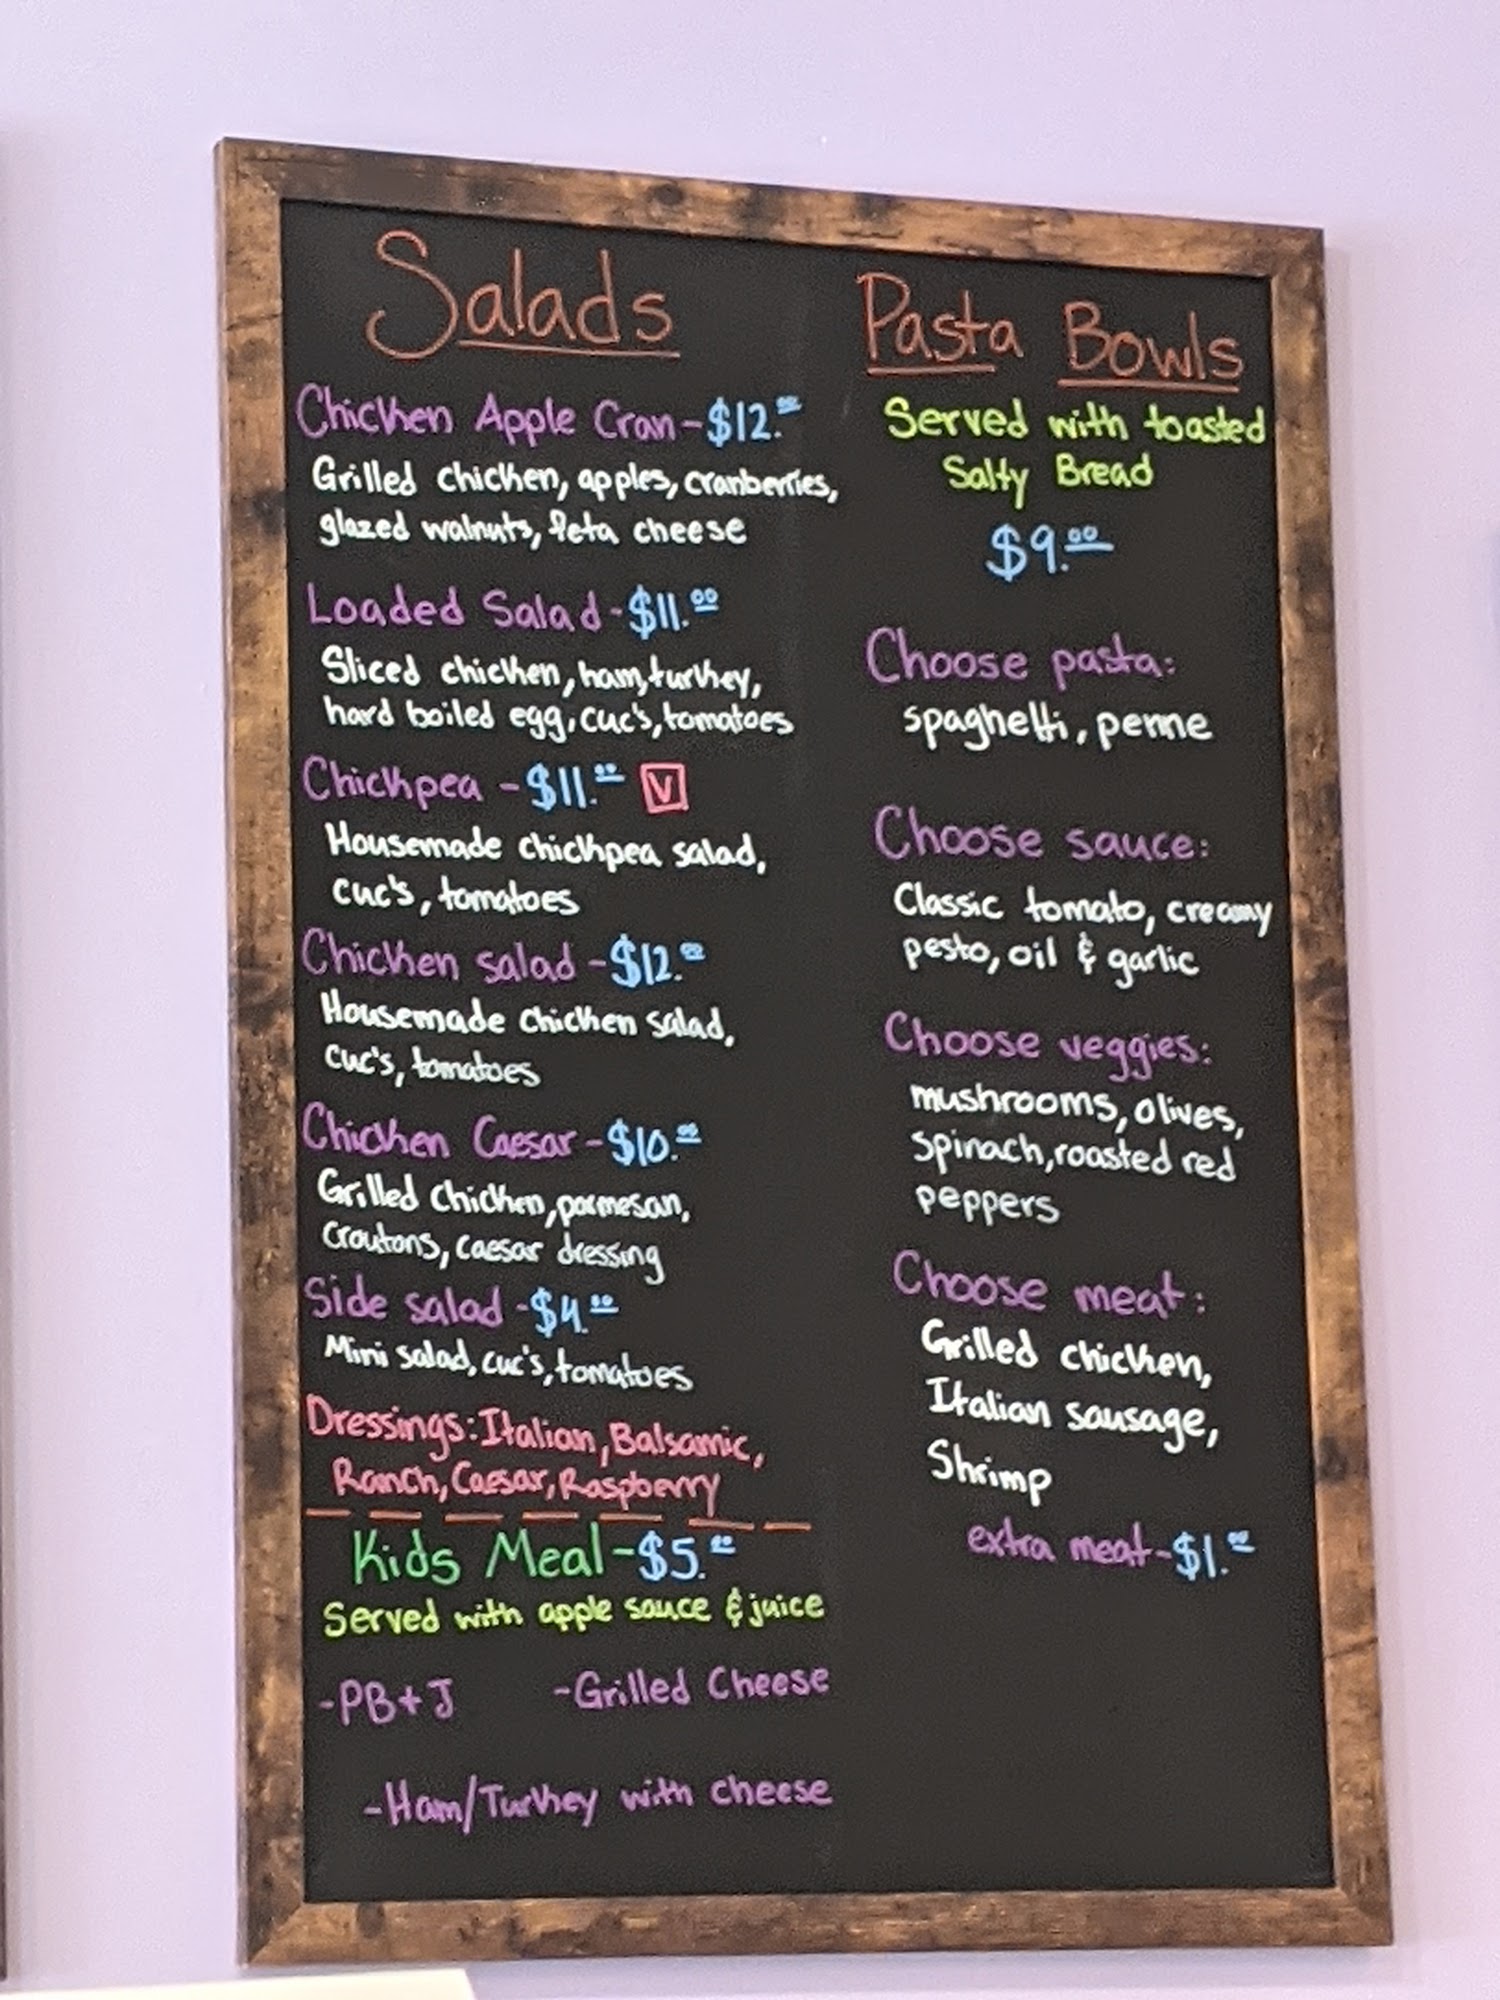 Salads
Chicken Apple Cran - $12.00
Grilled chicken, apples, cranberries,
glazed walnuts, feta cheese
Loaded Salad - $11.00
Sliced chicken, ham, turkey,
hard boiled egg, cuc's, tomatoes
Chickpea - $11.00 V
Housemade chickpea salad,
cuc's, tomatoes
Chicken salad - $12.00
Housemade chicken salad,
cuc's, tomatoes
Chicken Caesar - $10.00
Grilled chicken, parmesan,
Croutons, caesar dressing
Side salad - $4.00
Mini salad, cuc's, tomatoes
Dressings: Italian, Balsamic,
Ranch, Caesar, Raspberry
Kids Meal - $5.00
Served with apple sauce & juice
- PB + J
- Grilled Cheese
- Ham/Turkey with cheese
Pasta Bowls
Served with toasted
Salty Bread
$9.00
Choose pasta:
spaghetti, penne
Choose sauce:
Classic tomato, creamy
pesto, oil & garlic
Choose veggies:
mushrooms, olives,
spinach, roasted red
peppers
Choose meat:
Grilled chicken,
Italian sausage,
Shrimp
extra meat - $1.00